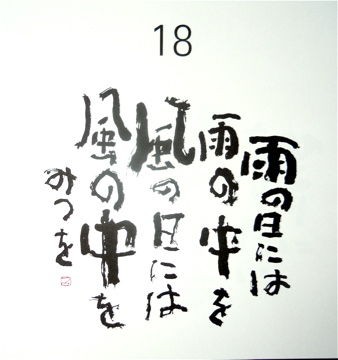 18
雨の日には
雨の中を
風の日には
風の中を
みつを